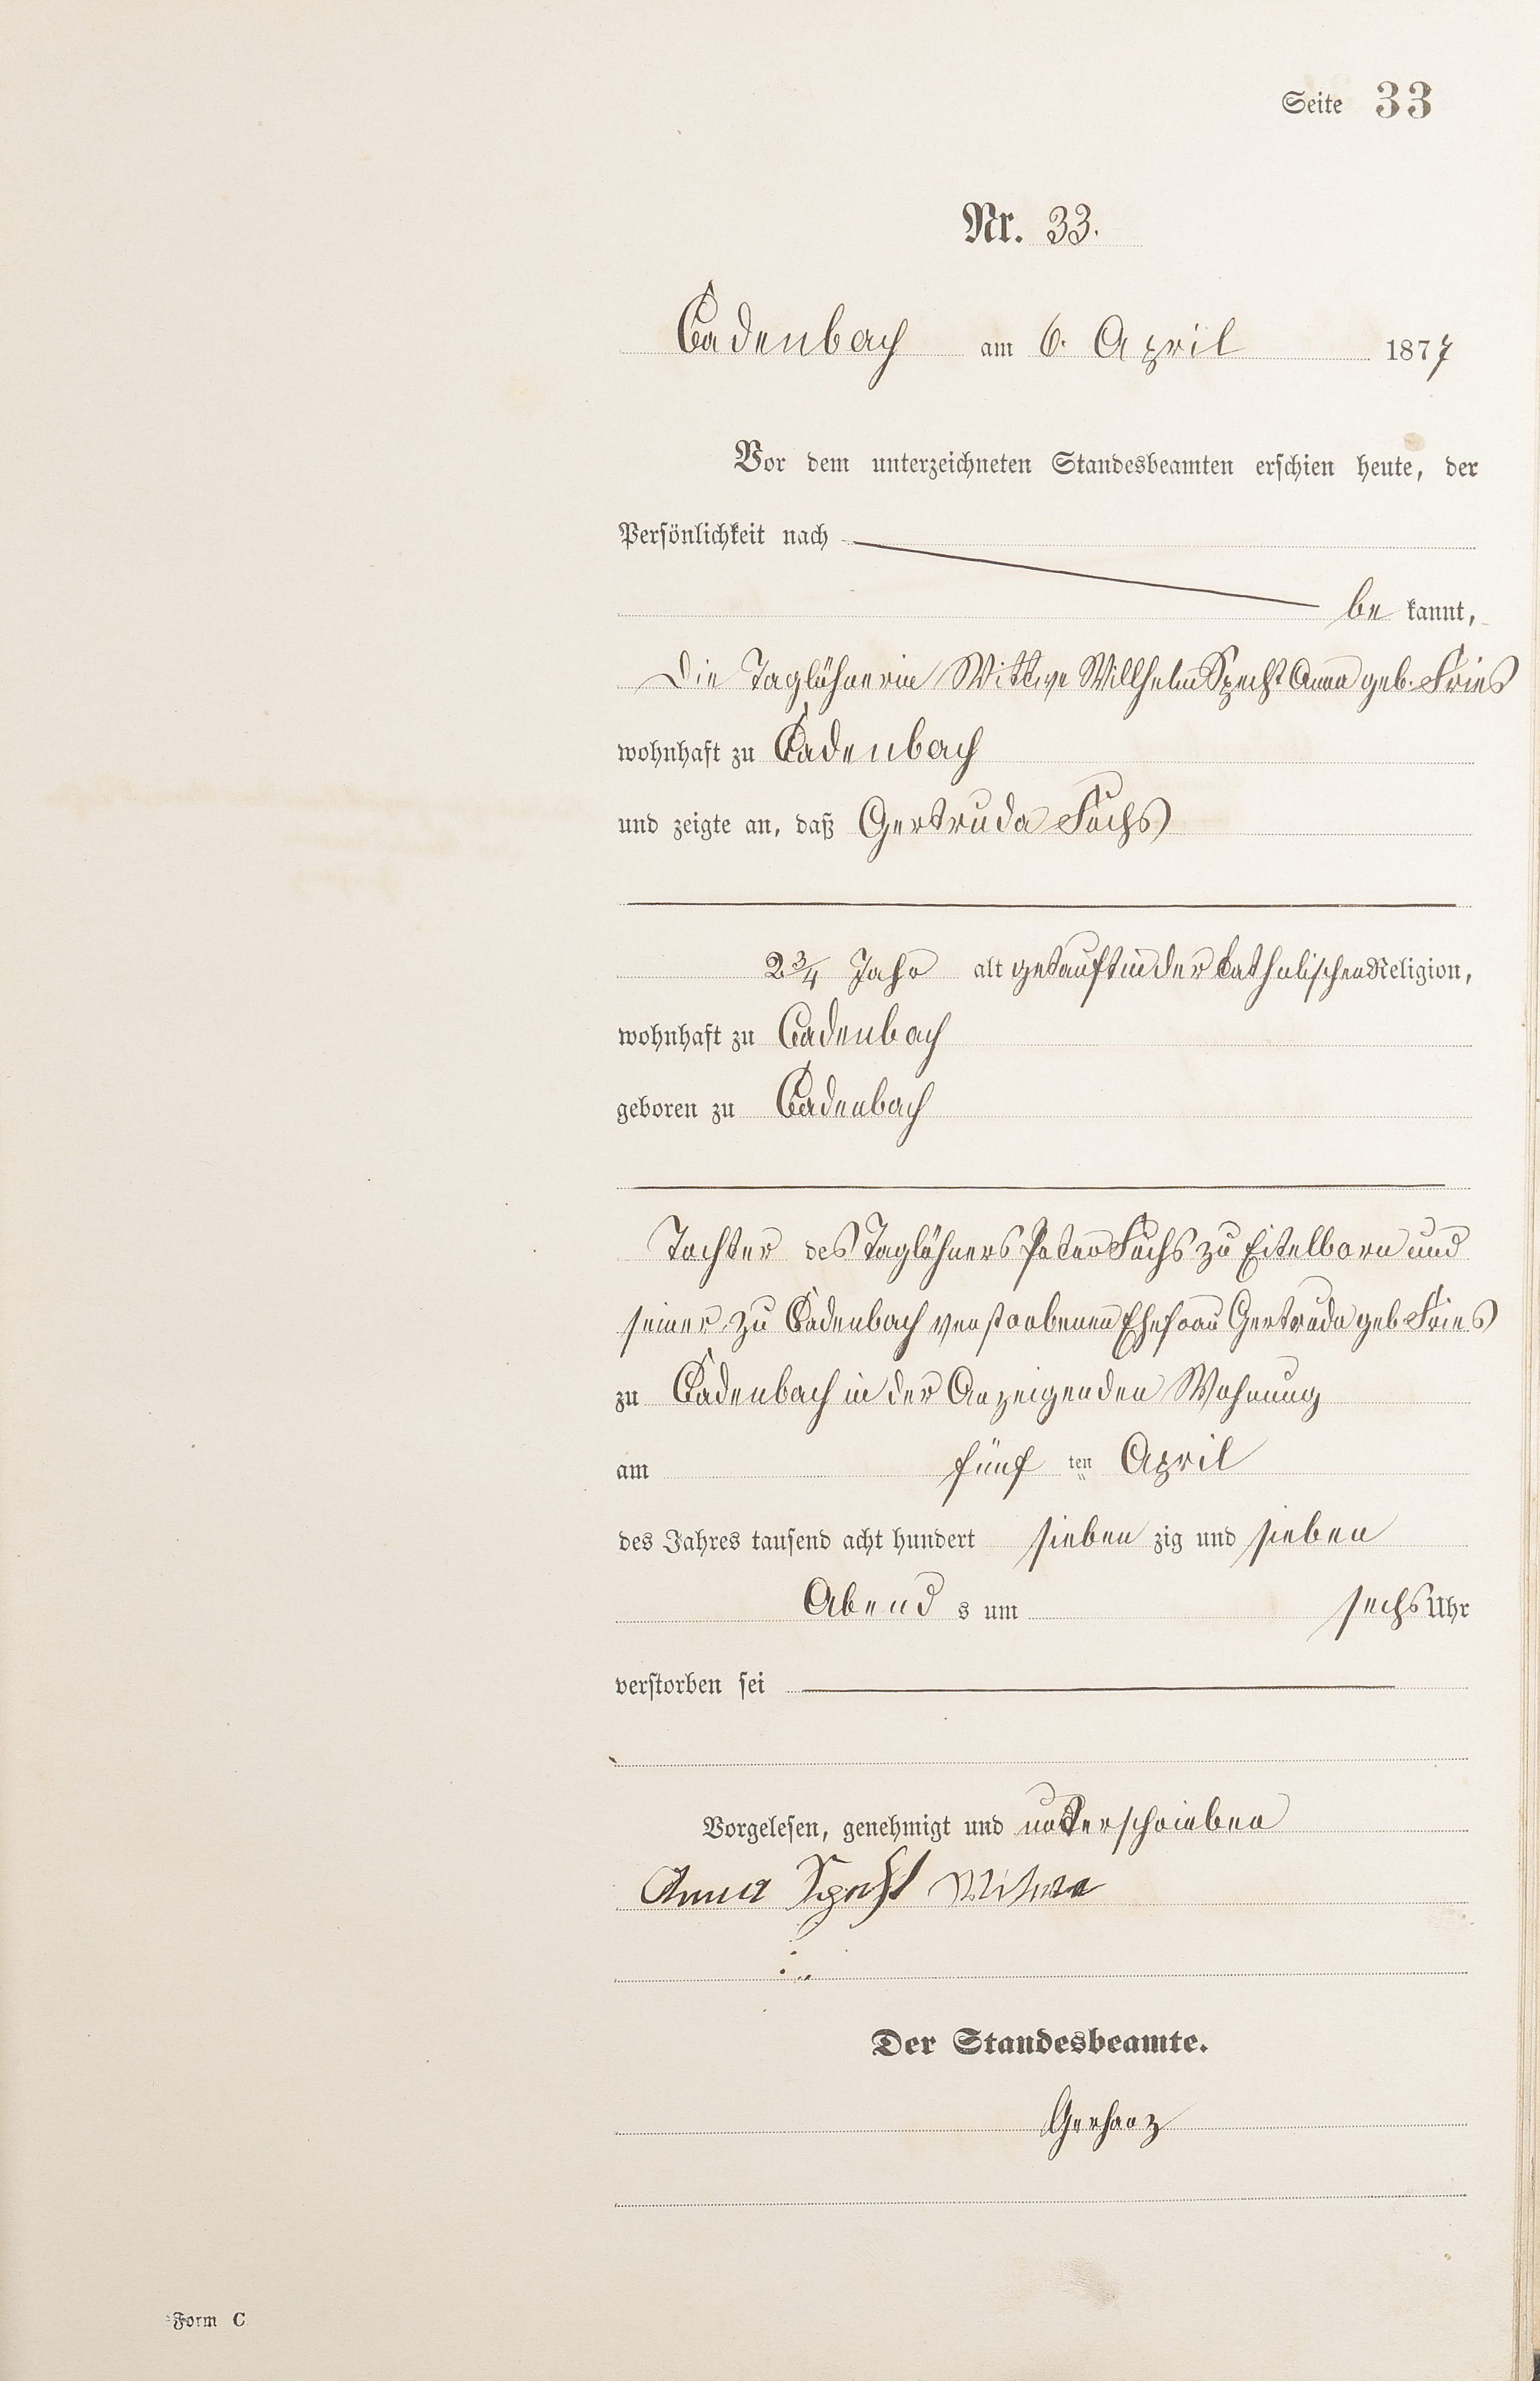 Seite 33
Nr. 33.
Cadenbach am 6. April 1877
Vor dem unterzeichneten Standesbeamten erschien heute, der
Persönlichkeit nach
be kannt,
Die Taglöhnerin Wittwe Willhelm Specht Anna geb. Fries
wohnhaft zu Cadenbach
und zeigte an, daß Gertruda Fuchs
2 3/4 Jahr alt getauft in der katholischen Religion,
wohnhaft zu Cadenbach
geboren zu Cadenbach
Tochter des Taglöhners Peter Fuchs zu Eitelborn und
seiner zu Cadenbach verstorbenen Ehefrau Gertruda geb Fries
zu Cadenbach in der Anzeigenden Wohnung
am fünf ten April
des Jahres tausend acht hundert sieben zig und sieben
Abend s um sechs Uhr
verstorben sei
Vorgelesen, genehmigt und unterschrieben
Anna Specht
Der Standesbeamte.
Gerharz
Form C